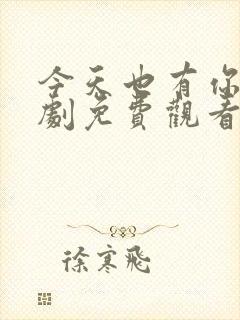 今天也有你
劇免費觀看
徐寒飛